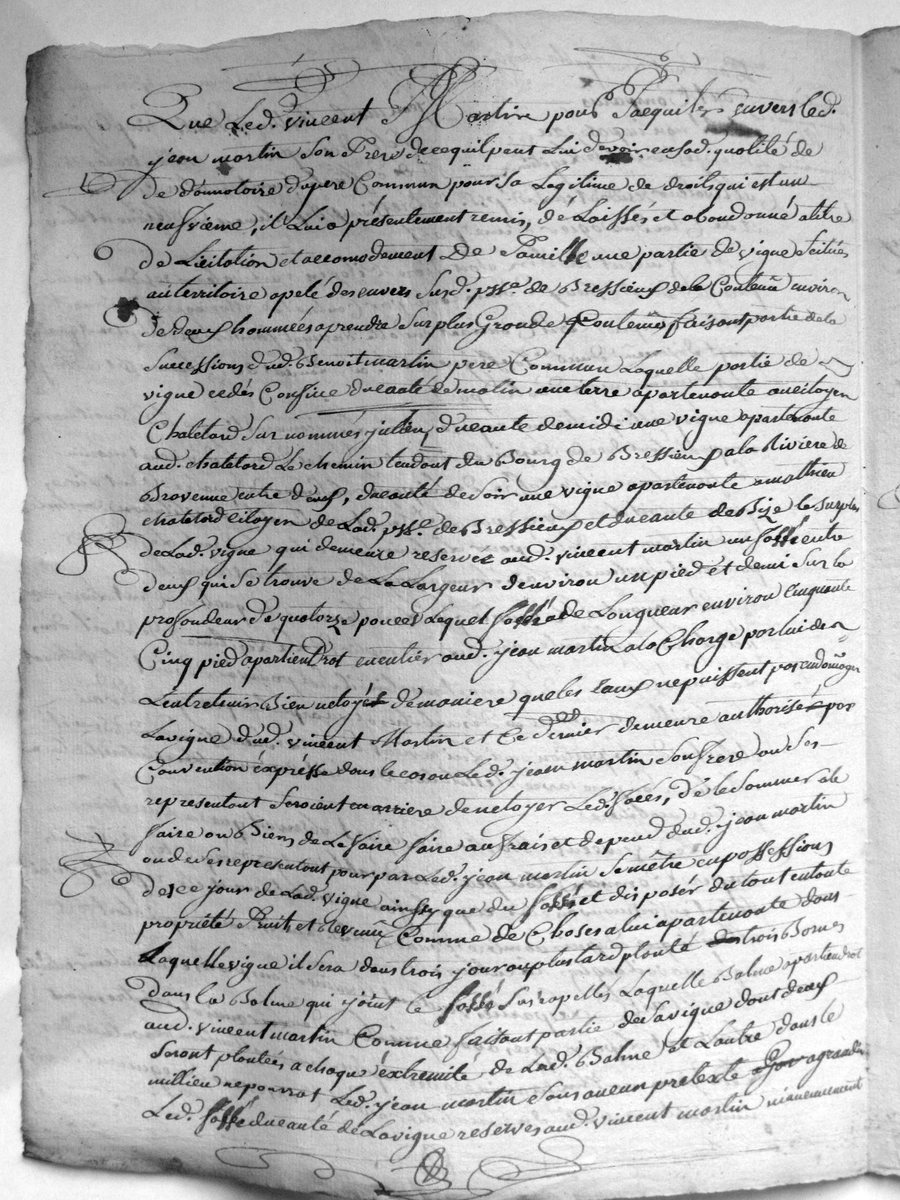 Que Led. vincent Martin pour Saequiter envers led.
jean martin Son frere de ce quil peut Lui devoir en sad. qualité de
de donnatoire du pere Commun pour Sa Legitime de droits qui est un
neufvieme, il Luia présentement remis, de Laissés et abandonné atitre
de Licitation et accomodement De Famille une partie de vigne scitués
au territoire apelé des envers Susd. psse. de Bressieux de la Contenü environ
de deux hommées aprendre Sur plus Grande Contenü faisant partie de la
Successions dud. Benoit martin pere Commun Laquelle partie de
vigne cedés Confine du cauté de matin une terre apartenante au citoyen
Chatetard Sur nommés julien, du cauté de midi une vigne apartenante
aud. chatetard Le chemin tendant du Bourg de Bressieux ala Rivière de
Brovenne entre deux, du cauté de soir une vigne apartenante amathieu
chatetard citoyen de Lad. psse. de Bressieux et du cauté de Bize le surplus
de Lad. vigne qui demeure reservés aud. vincent martin un fossé entre
deux qui se trouve de La Largeur d'environ un pied et demi Sur la
profondeur de quatorze pouces Lequel fossé de Longueur environ Cinquante
Cinq pied apartiendrat en entier aud. jean martin ala Charge par lui de
L'entretenir Bien netoyé de maniere que les Eaux ne puissent pas endomager
La vigne dud. vincent Martin et Ce dernier demeure authorisé par
Convention expresse dans le cas ou Led. jean martin Son frere ou Ses
representant Seroient en arriere de netoyer Led. fossés, de le Sommer de le
faire ou Biens de Le faire faire au frais et depend dud. jean martin
ou de ses representant pour par Led. jean martin Se mêtre en possessions
des ce jour de Lad. vigne ainsy que du fossé et disposér du tout en toute
propriété Fruits et Revenux Comme de Choses a lui apartenante dans
Laquelle vigne il Sera dans trois jour au plus tard planté trois Bornes
dans la Balme qui joint le fossé Sus rapelles Laquelle Balme apartiendrat
aud. vincent martin Comme faisant partie de Sa vigne dont deux
Seront plantées a chaque éxtremité de Lad. Balme et Lautre dans le
millieu ne pourrat Led. jean martin Sous aucun pretexte agrandir
Led. fossé du cauté de La vigne reservés aud. vincent martin ni aucunement